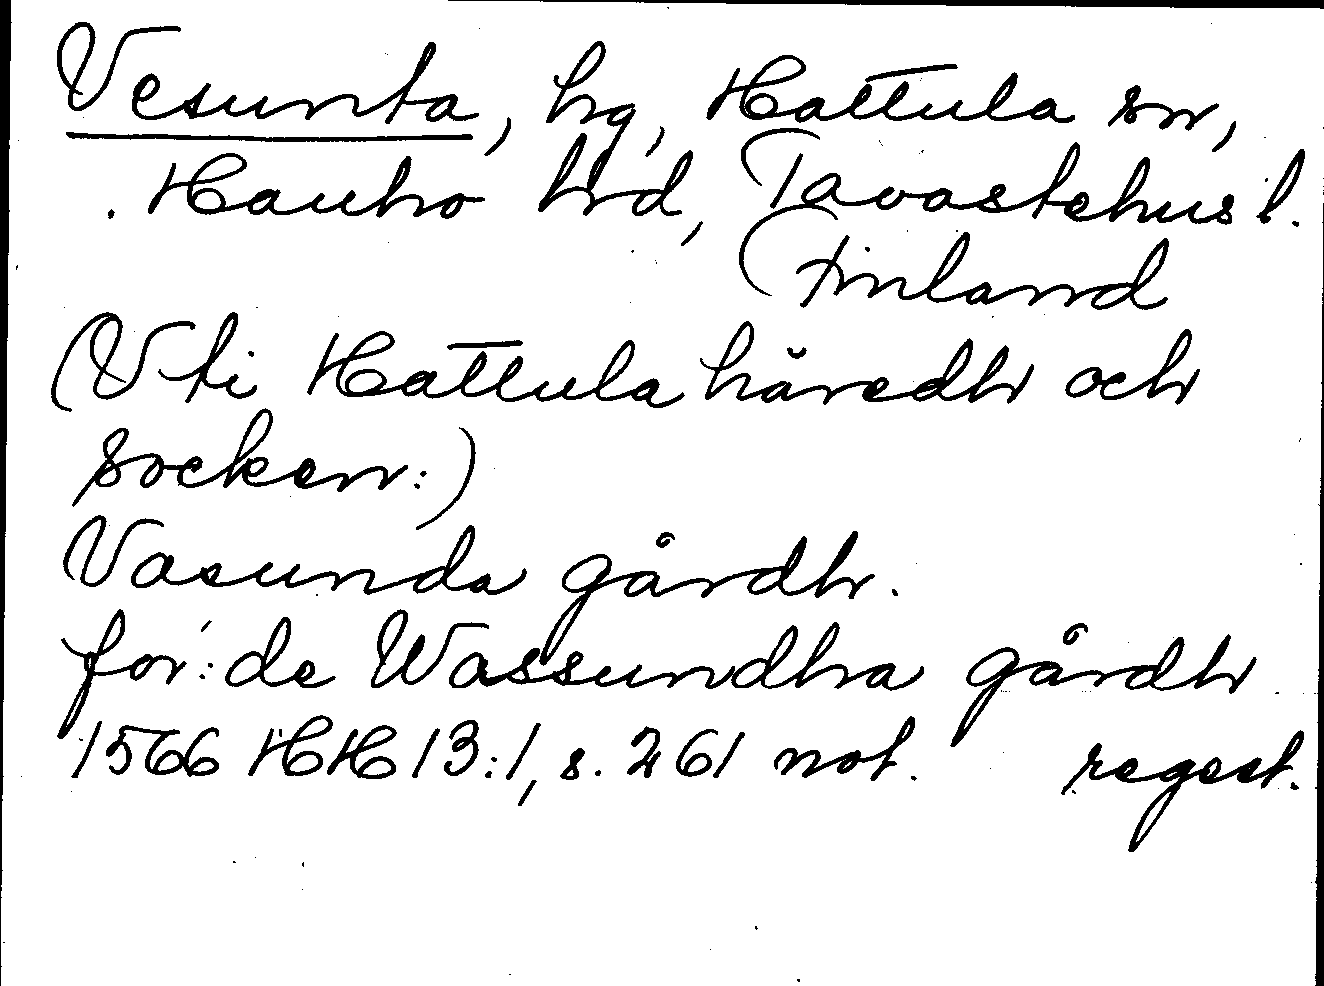 Vesunta, hg, Hattula sn,
Hauho hrd, Tavastehus l.
Finland
(Vti Hattula häredh och
socken:)
Vasunda gårdh.
for: de Wassundha gårdh
1566 HH 13:1, s. 261 not. regest.